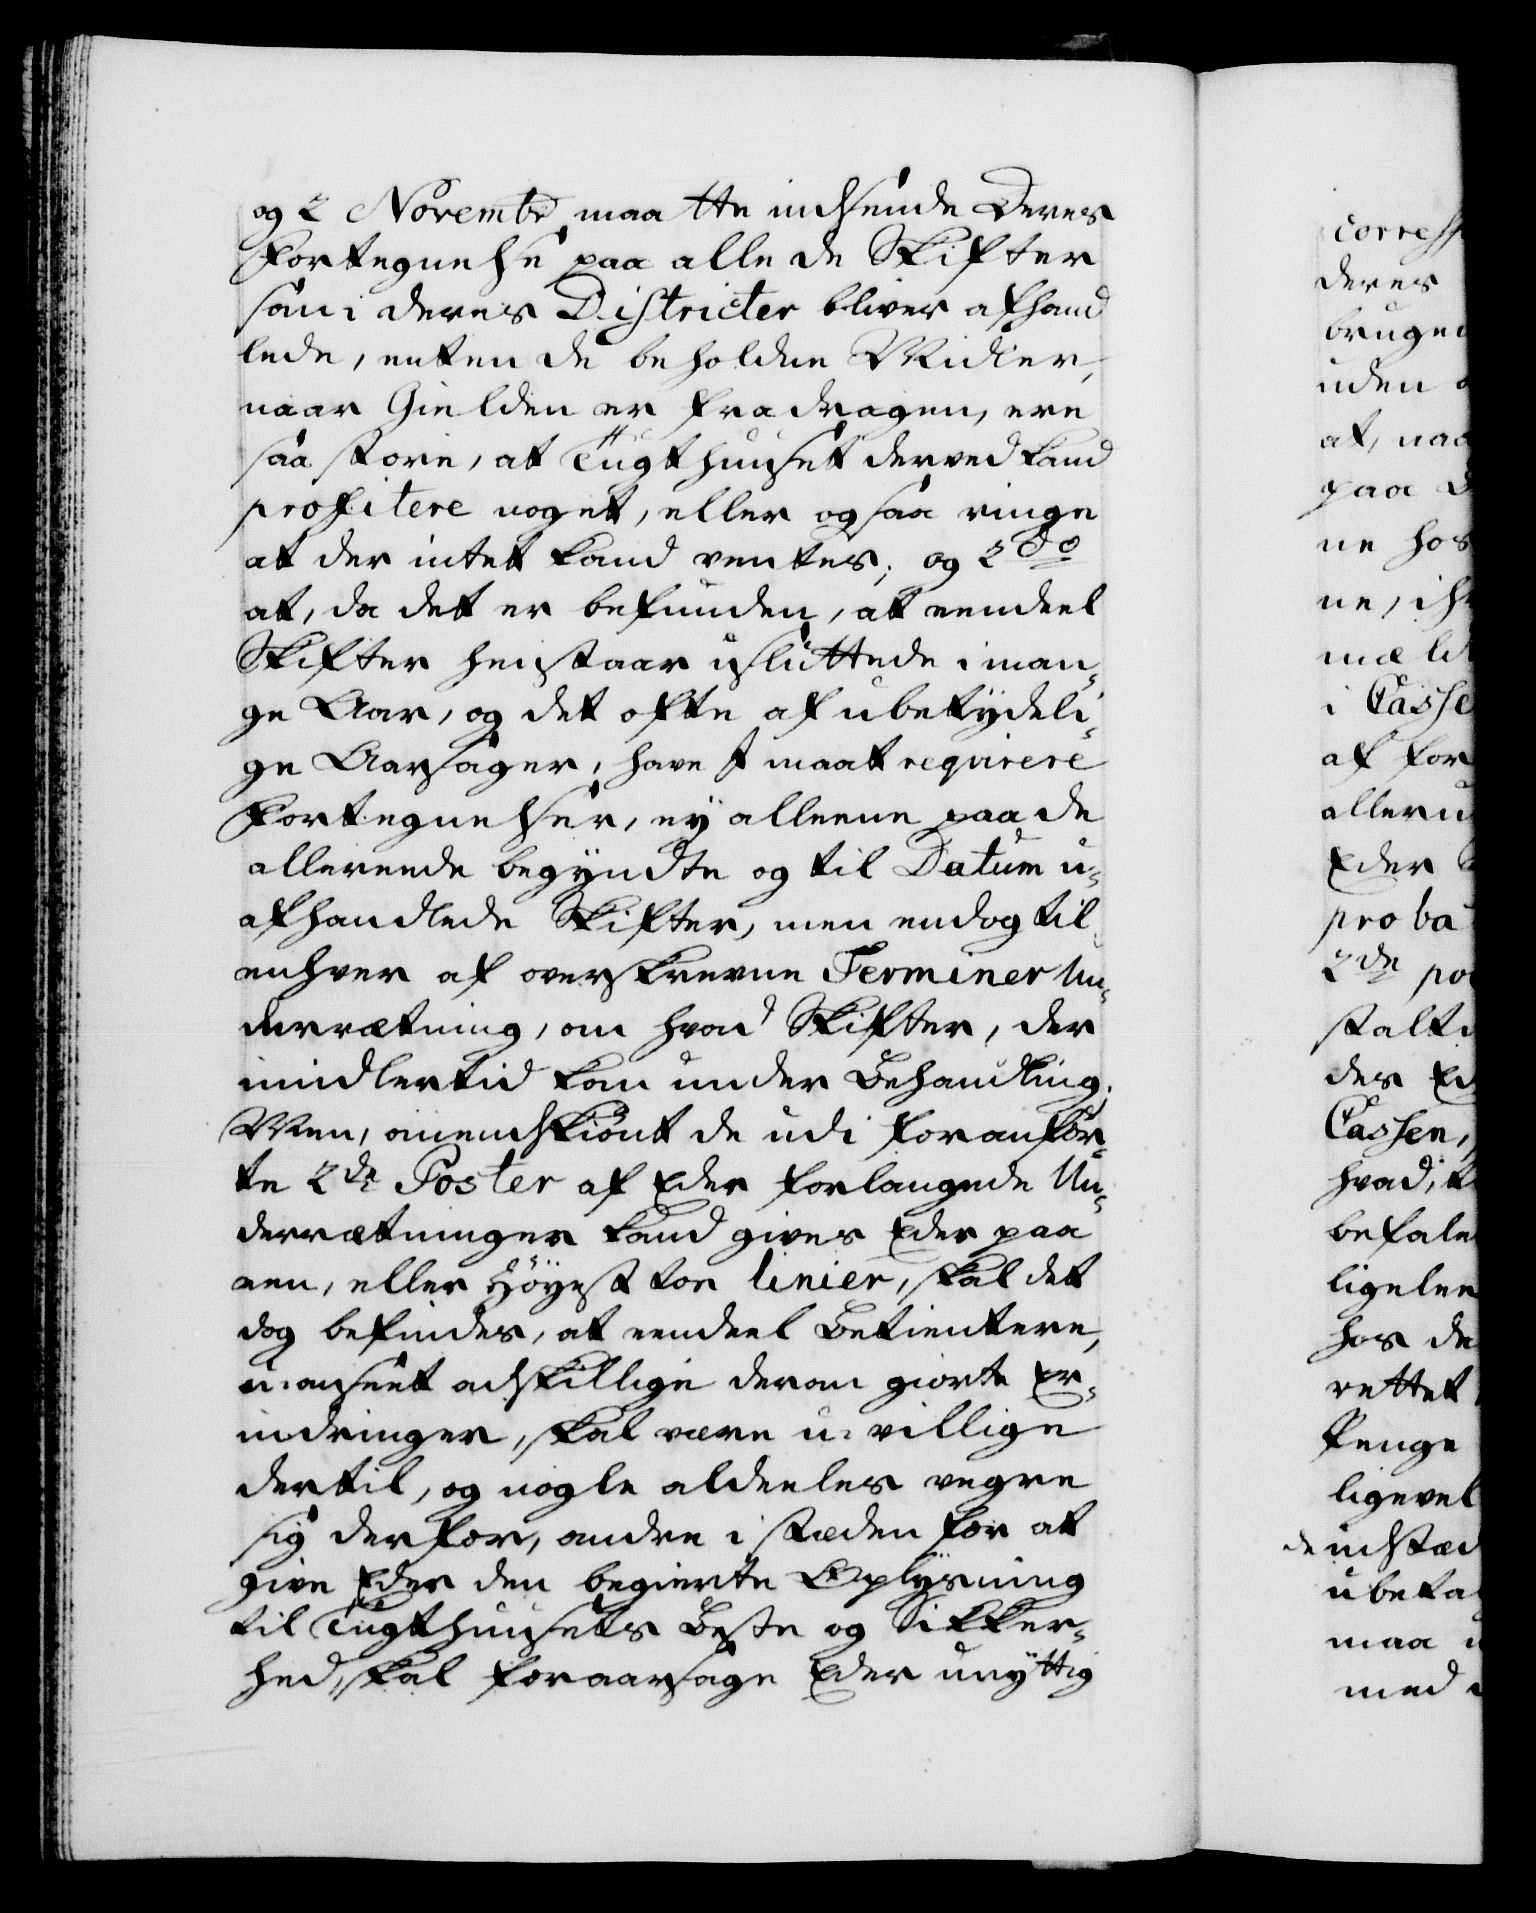 og 2 Novembr maatte indsende Deres
Fortegnelse paa alle de Skifter
som i deres Districter bliver afhand
lede, enten de beholdne Midler,
naar Gielden er fradragen, ere
saa store, at Tugthuuset derved kand
profitere noget, eller og saa ringe
at der intet kand ventes; og 2do
at, da det er befunden, at eendeel
Skifter henstaar usluttede i man-
ge Aar, og det ofte af ubetydeli-
ge Aarsager, have I maat reqvirere
Fortegnelser, ey alleene paa de
allereede begyndte og til Datum u-
afhandlede Skifter, men endog til
enhver af overskrevne Terminer Un-
derrætning, om hvad Skifter, der
imidlertid kom under Behandling;
Men, omendskiønt de udi foranfør-
te 2de Poster af Eder forlangede Un-
derrætninger kand gives Eder paa
een, eller Høyest toe linier, skal det
dog befindes, at eendeel Betientere,
u-anseet adskillige derom giorte Er-
indringer, skal være u-villige
dertil, og nogle aldeeles vegre
sig derfor, andre i stæden for at
give Eder den begierte Oplysning
til Tugthuusets Beste og Sikker-
hed, skal foraarsage Eder unyttig
corresp
deres
bruge
uden
at, naa
paa
ne hos
ne,
mæld
i Casse
af for
alleru
Eder
proba
2de po
stalt
des Ed
Cassen,
hvad,
befale
ligelee
hos de
rettet
Penge
ligevel
de indstæd
ubeta
maa
med